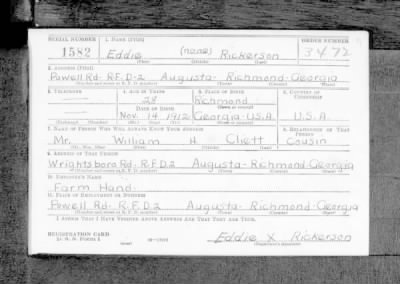 SERIAL NUMBER 1. NAME (Print) ORDER NUMBER
1582 Eddie (none) Rickerson 3472
(First) (Middle) (Last)
2. ADDRESS (Print)
Powell Rd. R.F.D-2 Augusta- Richmond- Georgia
(Number and street or R. F. D. number) (Town) (County) (State)
3. TELEPHONE 4. AGE IN YEARS 5. PLACE OF BIRTH 6. COUNTRY OF CITIZENSHIP
28 Richmond
DATE OF BIRTH (Town or county)
Nov. 14 1912 Georgia U.S.A. U.S.A.
(Exchange) (Number) (Mo.) (Day) (Yr.) (State or country)
7. NAME OF PERSON WHO WILL ALWAYS KNOW YOUR ADDRESS 8. RELATIONSHIP OF THAT PERSON
Mr. William H Cliett Cousin
(Mr., Mrs., Miss) (First) (Middle) (Last)
9. ADDRESS OF THAT PERSON
Wrightsboro Rd. R.F.D.2 Augusta- Richmond- Georgia
(Number and street or R. F. D. number) (Town) (County) (State)
10. EMPLOYER'S NAME
Farm Hand.
11. PLACE OF EMPLOYMENT OR BUSINESS
Powell Rd. R.F.D.2 Augusta- Richmond- Georgia
(Number and street or R. F. D. number) (Town) (County) (State)
I AFFIRM THAT I HAVE VERIFIED ABOVE ANSWERS AND THAT THEY ARE TRUE.
REGISTRATION CARD
D. S. S. FORM 1 Eddie X Rickerson
(Registrant's signature)